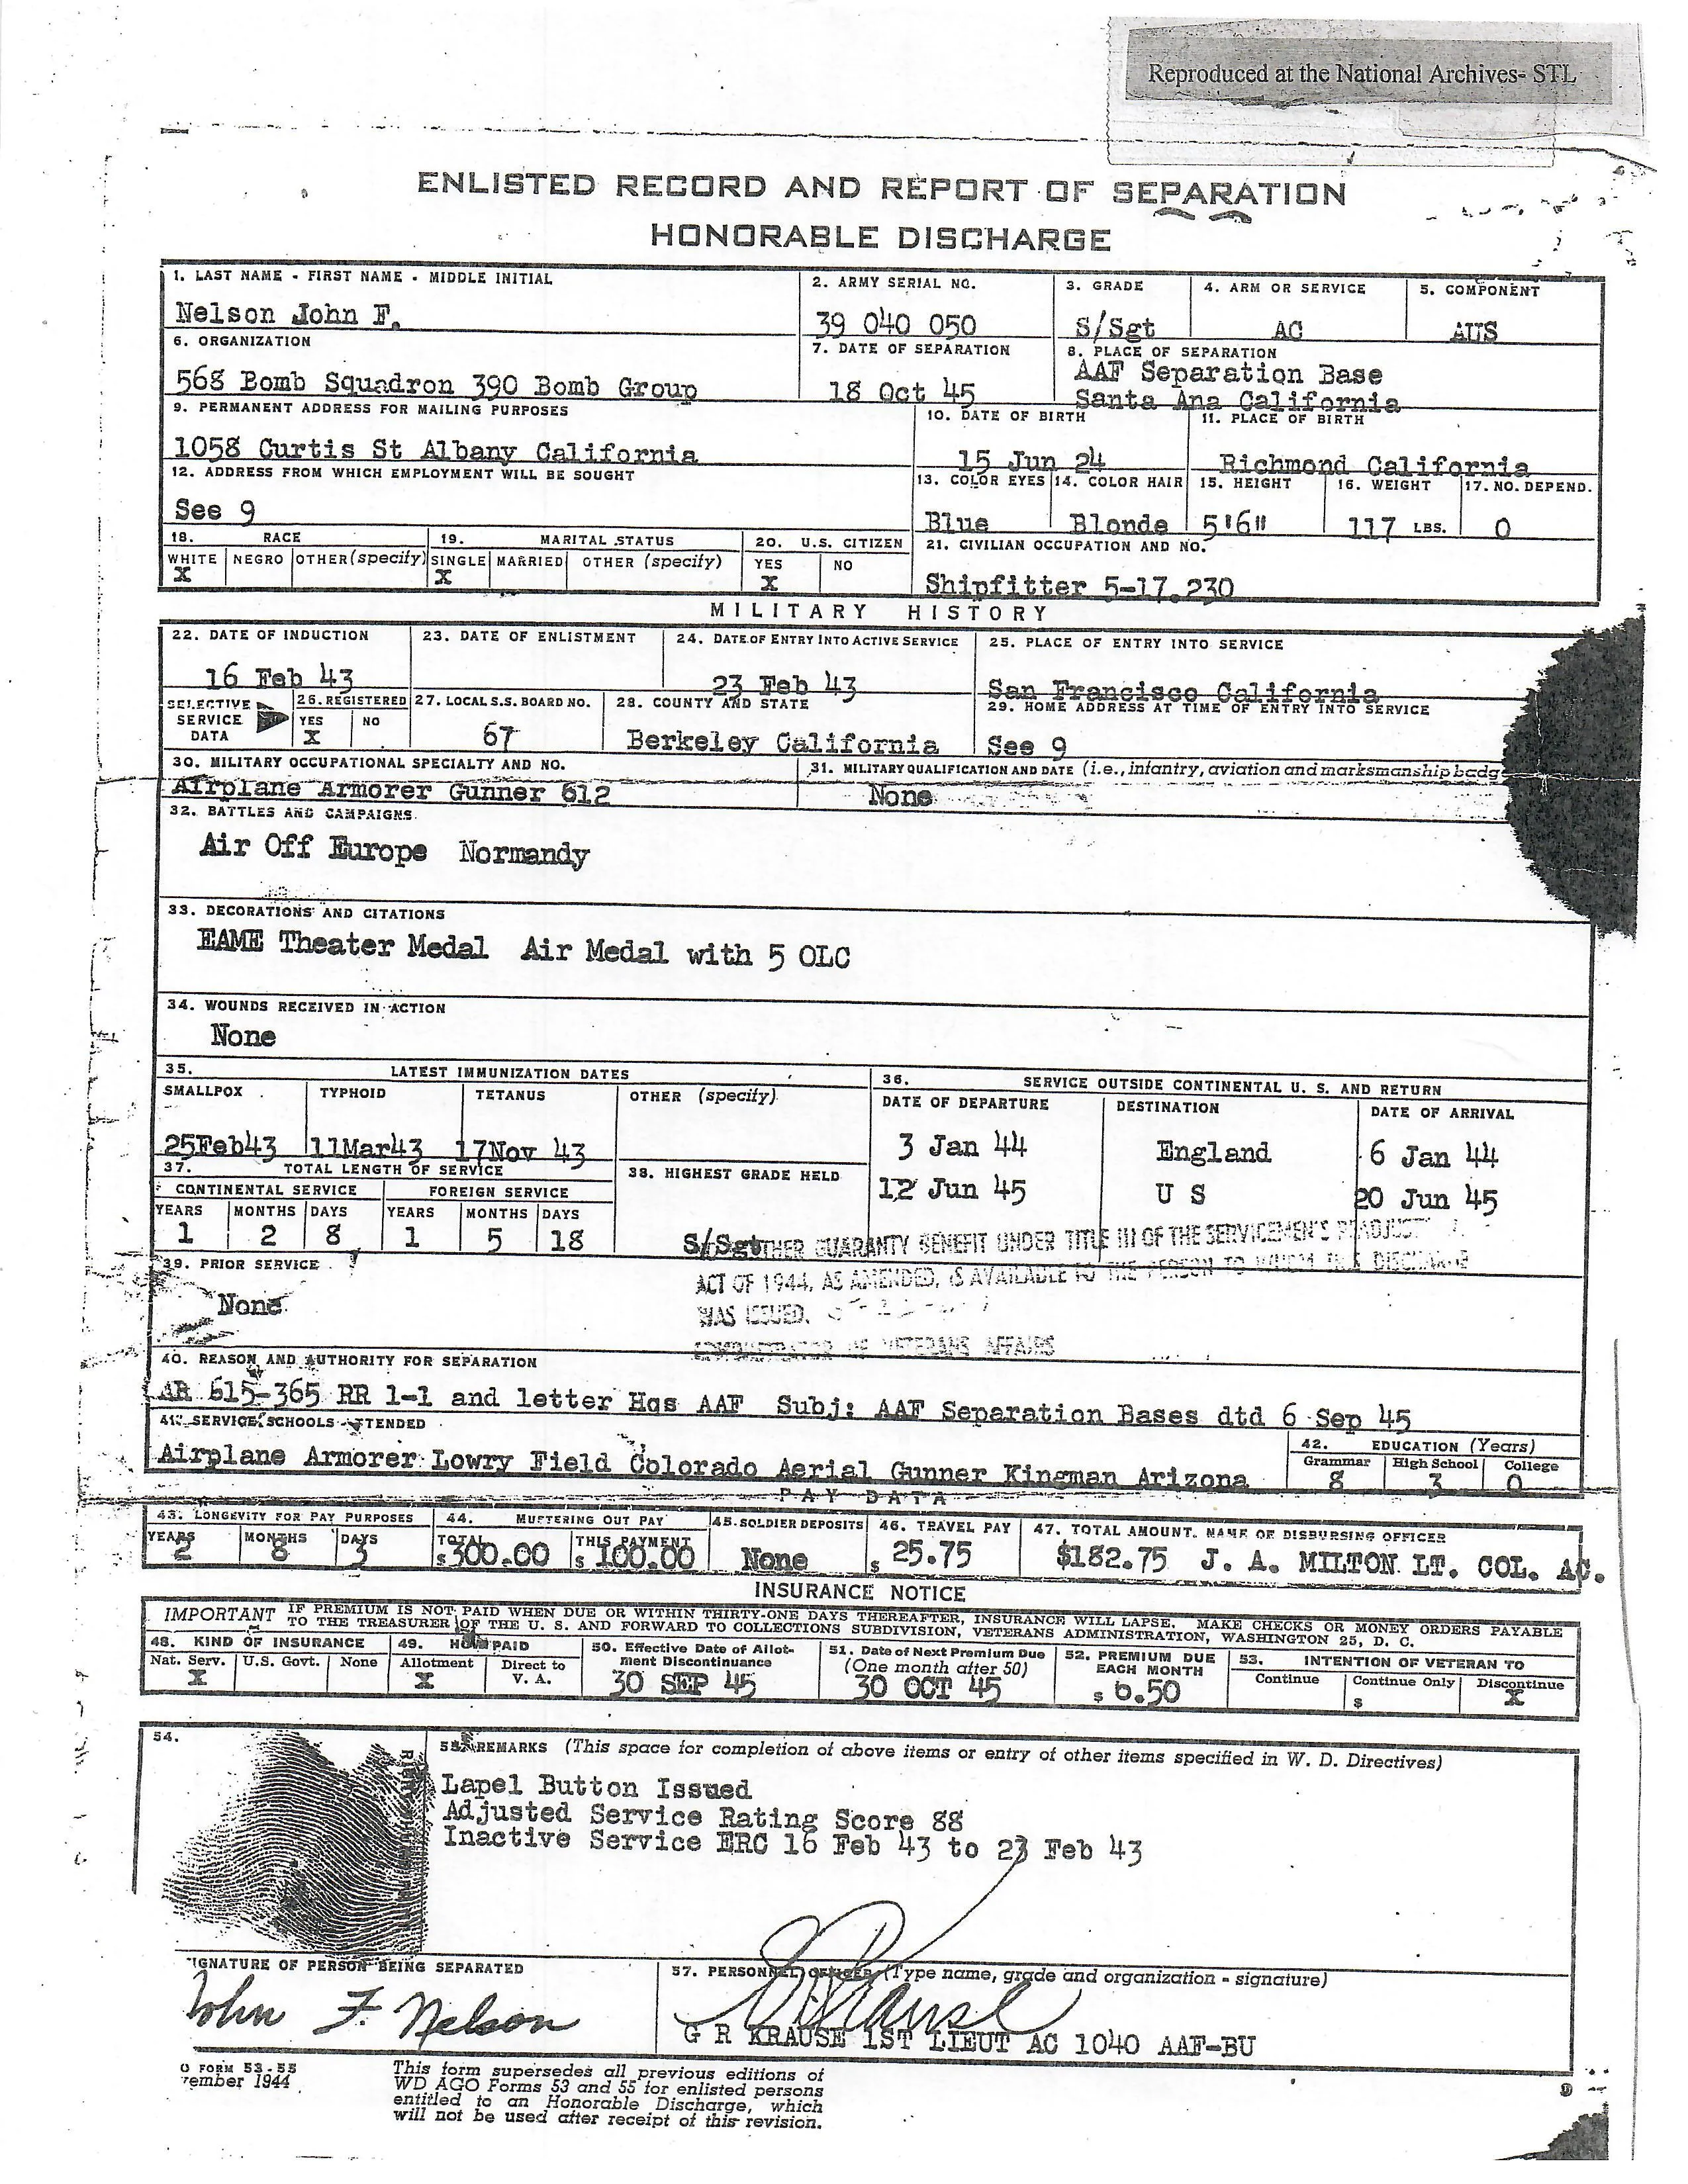 Reproduced at the National Archives- STL
ENLISTED RECORD AND REPORT OF SEPARATION
HONORABLE DISCHARGE
1. LAST NAME - FIRST NAME - MIDDLE INITIAL
2. ARMY SERIAL NO.
3. GRADE
4. ARM OR SERVICE
5. COMPONENT
Nelson John F.
39 040 050
S/Sgt
AC
AUS
6. ORGANIZATION
7. DATE OF SEPARATION
8. PLACE OF SEPARATION
568 Bomb Squadron 390 Bomb Group
18 Oct 45
AAF Separation Base
Santa Ana California
9. PERMANENT ADDRESS FOR MAILING PURPOSES
10. DATE OF BIRTH
11. PLACE OF BIRTH
1058 Curtis St Albany California
15 Jun 24
Richmond California
12. ADDRESS FROM WHICH EMPLOYMENT WILL BE SOUGHT
13. COLOR EYES
14. COLOR HAIR
15. HEIGHT
16. WEIGHT
17. NO. DEPEND.
See 9
Blue
Blonde
5'6"
117 LBS.
0
18. RACE
19. MARITAL STATUS
20. U.S. CITIZEN
21. CIVILIAN OCCUPATION AND NO.
WHITE NEGRO OTHER (specify) SINGLE MARRIED OTHER (specify) YES NO
X X X
Shipfitter 5-17.230
MILITARY HISTORY
22. DATE OF INDUCTION
23. DATE OF ENLISTMENT
24. DATE OF ENTRY INTO ACTIVE SERVICE
25. PLACE OF ENTRY INTO SERVICE
16 Feb 43
23 Feb 43
San Francisco California
SELECTIVE SERVICE DATA
26. REGISTERED
YES NO
X
27. LOCAL S.S. BOARD NO.
67
28. COUNTY AND STATE
Berkeley California
29. HOME ADDRESS AT TIME OF ENTRY INTO SERVICE
See 9
30. MILITARY OCCUPATIONAL SPECIALTY AND NO.
31. MILITARY QUALIFICATION AND DATE (i.e., infantry, aviation and marksmanship badg
Airplane Armorer Gunner 612
None
32. BATTLES AND CAMPAIGNS
Air Off Europe Normandy
33. DECORATIONS AND CITATIONS
EAME Theater Medal Air Medal with 5 OLC
34. WOUNDS RECEIVED IN ACTION
None
35. LATEST IMMUNIZATION DATES
36. SERVICE OUTSIDE CONTINENTAL U. S. AND RETURN
SMALLPOX TYPHOID TETANUS OTHER (specify)
DATE OF DEPARTURE DESTINATION DATE OF ARRIVAL
25Feb43 11Mar43 17Nov 43
3 Jan 44 England 6 Jan 44
12 Jun 45 U S 20 Jun 45
37. TOTAL LENGTH OF SERVICE
38. HIGHEST GRADE HELD
CONTINENTAL SERVICE FOREIGN SERVICE
YEARS MONTHS DAYS YEARS MONTHS DAYS
1 2 8 1 5 18
S/Sgt
THER GUARANTY BENEFIT UNDER TITLE III OF THE SERVICEMEN'S READJUST
ACT OF 1944, AS AMENDED, IS AVAILABLE TO THE PERSON TO WHOM THIS DISCHARGE
WAS ISSUED.
ADMINISTRATOR OF VETERANS AFFAIRS
39. PRIOR SERVICE
None
40. REASON AND AUTHORITY FOR SEPARATION
AR 615-365 RR 1-1 and letter Hqs AAF Subj: AAF Separation Bases dtd 6 Sep 45
41. SERVICE SCHOOLS ATTENDED
Airplane Armorer Lowry Field Colorado Aerial Gunner Kingman Arizona
42. EDUCATION (Years)
Grammar High School College
8 3 0
PAY DATA
43. LONGEVITY FOR PAY PURPOSES
44. MUSTERING OUT PAY
45. SOLDIER DEPOSITS
46. TRAVEL PAY
47. TOTAL AMOUNT. NAME OF DISBURSING OFFICER
YEARS MONTHS DAYS TOTAL THIS PAYMENT
2 8 3 $300.00 $100.00 None $25.75 $182.75 J. A. MILTON LT. COL. AC.
INSURANCE NOTICE
IMPORTANT IF PREMIUM IS NOT PAID WHEN DUE OR WITHIN THIRTY-ONE DAYS THEREAFTER, INSURANCE WILL LAPSE. MAKE CHECKS OR MONEY ORDERS PAYABLE
TO THE TREASURER OF THE U. S. AND FORWARD TO COLLECTIONS SUBDIVISION, VETERANS ADMINISTRATION, WASHINGTON 25, D. C.
48. KIND OF INSURANCE
Nat. Serv. U.S. Govt. None
X
49. HOW PAID
Allotment Direct to V. A.
X
50. Effective Date of Allotment Discontinuance
30 SEP 45
51. Date of Next Premium Due
(One month after 50)
30 OCT 45
52. PREMIUM DUE EACH MONTH
$ 6.50
53. INTENTION OF VETERAN TO
Continue Continue Only Discontinue
$ X
54.
55. REMARKS (This space for completion of above items or entry of other items specified in W. D. Directives)
Lapel Button Issued
Adjusted Service Rating Score 88
Inactive Service ERC 16 Feb 43 to 23 Feb 43
IGNATURE OF PERSON BEING SEPARATED
John F. Nelson
57. PERSONNEL OFFICER (Type name, grade and organization - signature)
G R KRAUSE 1ST LIEUT AC 1040 AAF-BU
O FORM 53-55
vember 1944
This form supersedes all previous editions of
WD AGO Forms 53 and 55 for enlisted persons
entitled to an Honorable Discharge, which
will not be used after receipt of this revision.